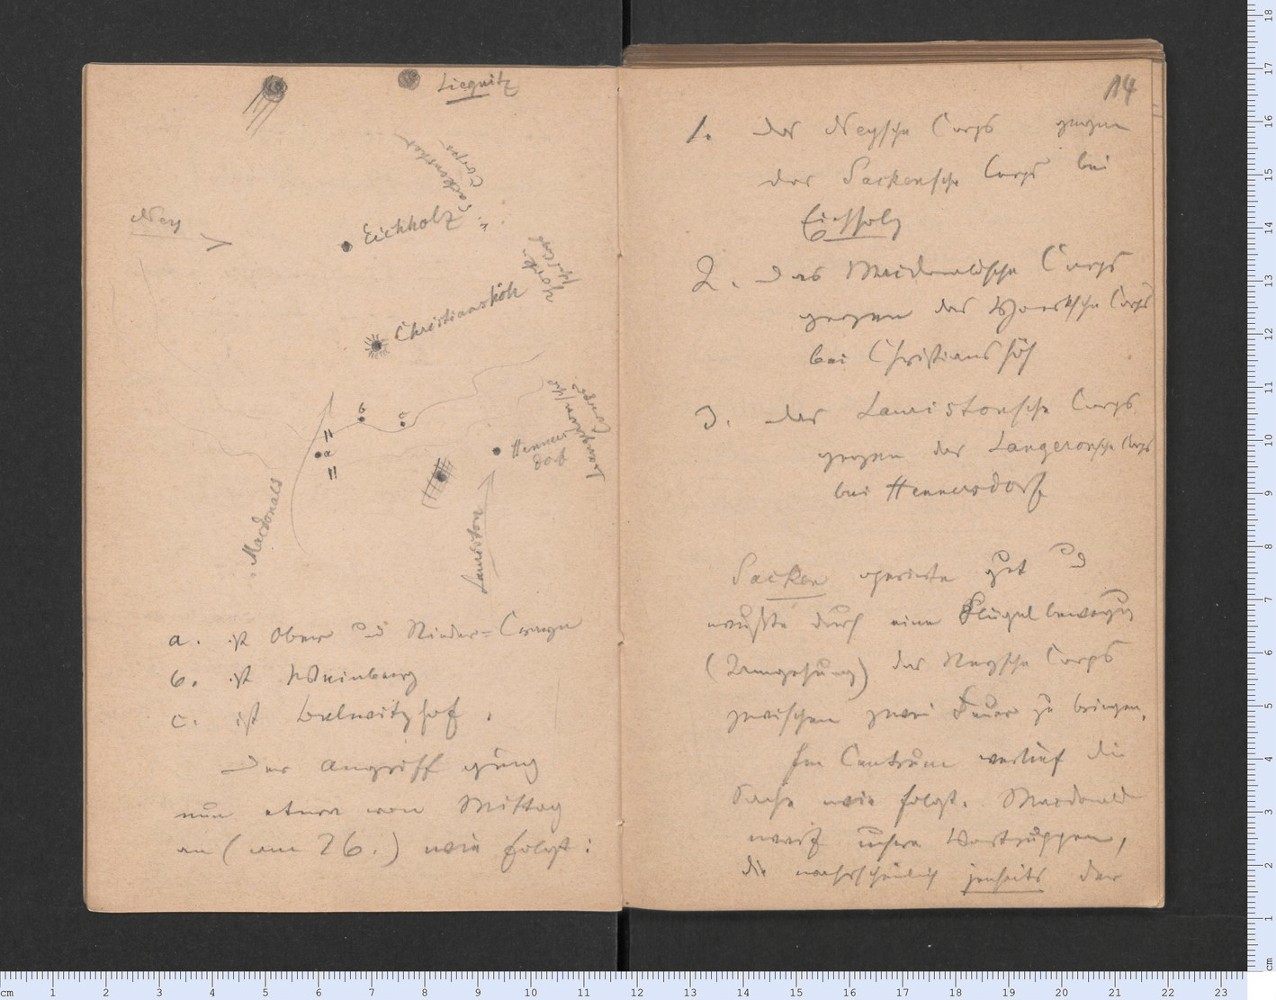 Liegnitz
Sackensches
Corps
Ney
Eichholz
York
sches Corps
Christianshöh
Langeronsches
Corps
b
c
a
Henners
dorf
Macdonald
Lauriston
a. ist Ober und Nieder=Crayn
b. ist Weinberg
c. ist Belwitzhof.
Der Angriff ging
nun etwa von Mittag
an (am 26.) wie folgt:
14
1. das Neysche Corps gegen
das Sackensche Corps bei
Eichholz
2. das Macdonaldsche Corps
gegen das Yorksche Corps
bei Christianshöh
3. das Lauristonsche Corps
gegen das Langeronsche Corps
bei Hennersdorf
Sacken operirte gut und
wußte durch eine Flügelbewegung
(Umgehung) das Neysche Corps
zwischen zwei Feuer zu bringen.
Im Centrum verlief die
Sache wie folgt. Macdonald
warf unsre Vortruppen,
die wahrscheinlich jenseits der